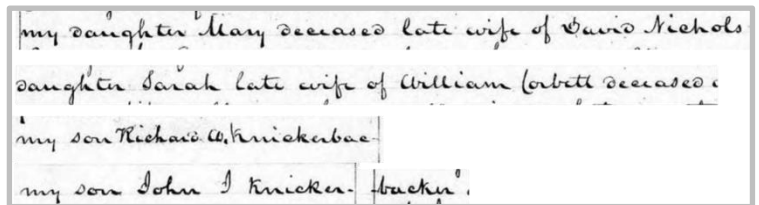 my daughter Mary deceased late wife of David Nichols
daughter Sarah late wife of William Corbett deceased
my son Richard W. Knickerbac-
my son John I Knicker- backer.